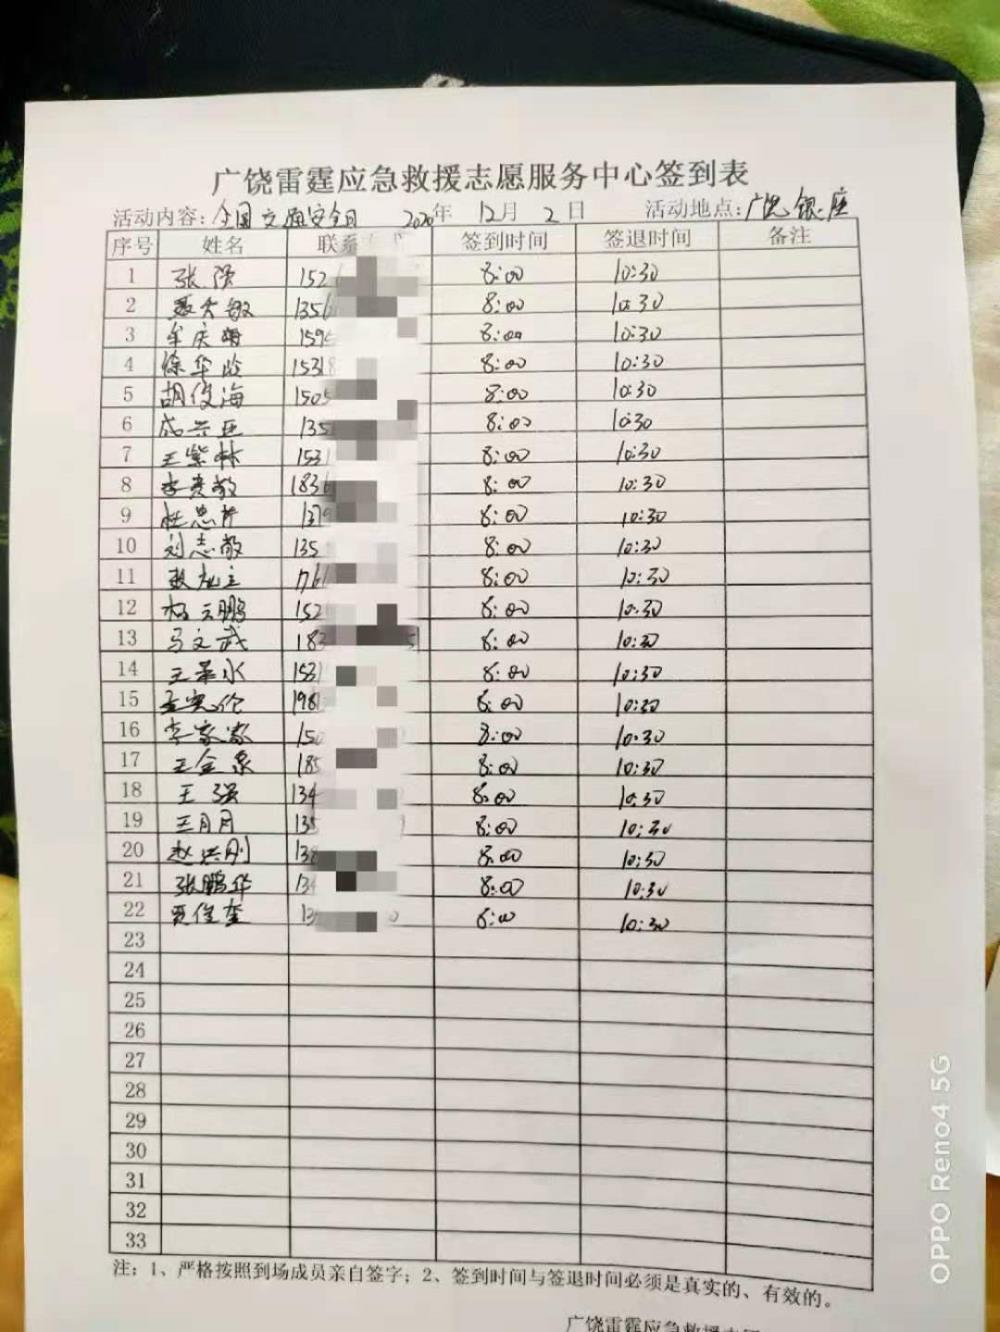 广饶雷霆应急救援志愿服务中心签到表
活动内容：全国交通安全日 2020年 12月 2日 活动地点：广饶银座
序号 姓名 联系 签到时间 签退时间 备注
1 张强 152 8:00 10:30
2 聂秀敏 1356 8:00 10:30
3 牟庆海 159 8:00 10:30
4 徐华 1531 8:00 10:30
5 胡俊海 1505 8:00 10:30
6 成兴亚 135 8:00 10:30
7 王紫林 1531 8:00 10:30
8 李贵敬 1836 8:00 10:30
9 杜忠 8:00 10:30
10 刘志敬 135 8:00 10:30
11 8:00 10:30
12 杨云鹏 152 8:00 10:30
13 马文武 183 8:00 10:30
14 王 水 1531 8:00 10:30
15 198 8:00 10:30
16 李家 150 8:00 10:30
17 王金泉 185 8:00 10:30
18 王强 134 8:00 10:30
19 王月月 135 8:00 10:30
20 赵洪刚 138 8:00 10:30
21 张鹏华 134 8:00 10:30
22 贾俊奎 13 8:00 10:30
23
24
25
26
27
28
29
30
31
32
33
注：1、严格按照到场成员亲自签字；2、签到时间与签退时间必须是真实的、有效的。
广饶雷霆应急救援志愿
OPPO Reno4 5G